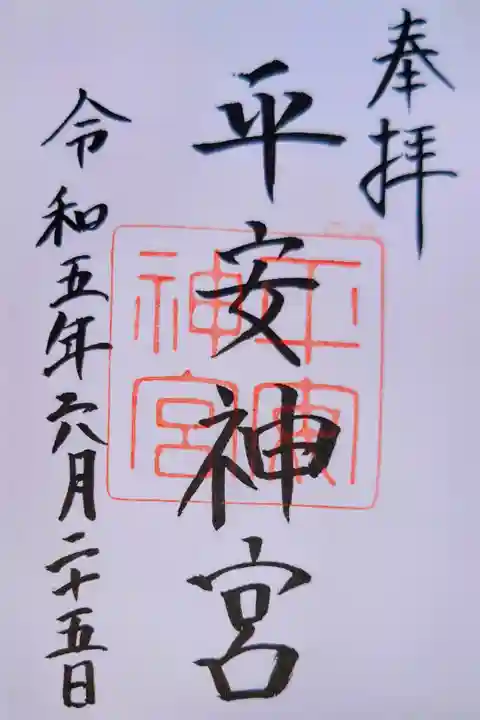 奉拝
平安神宮
令和五年六月二十五日
平安
神宮